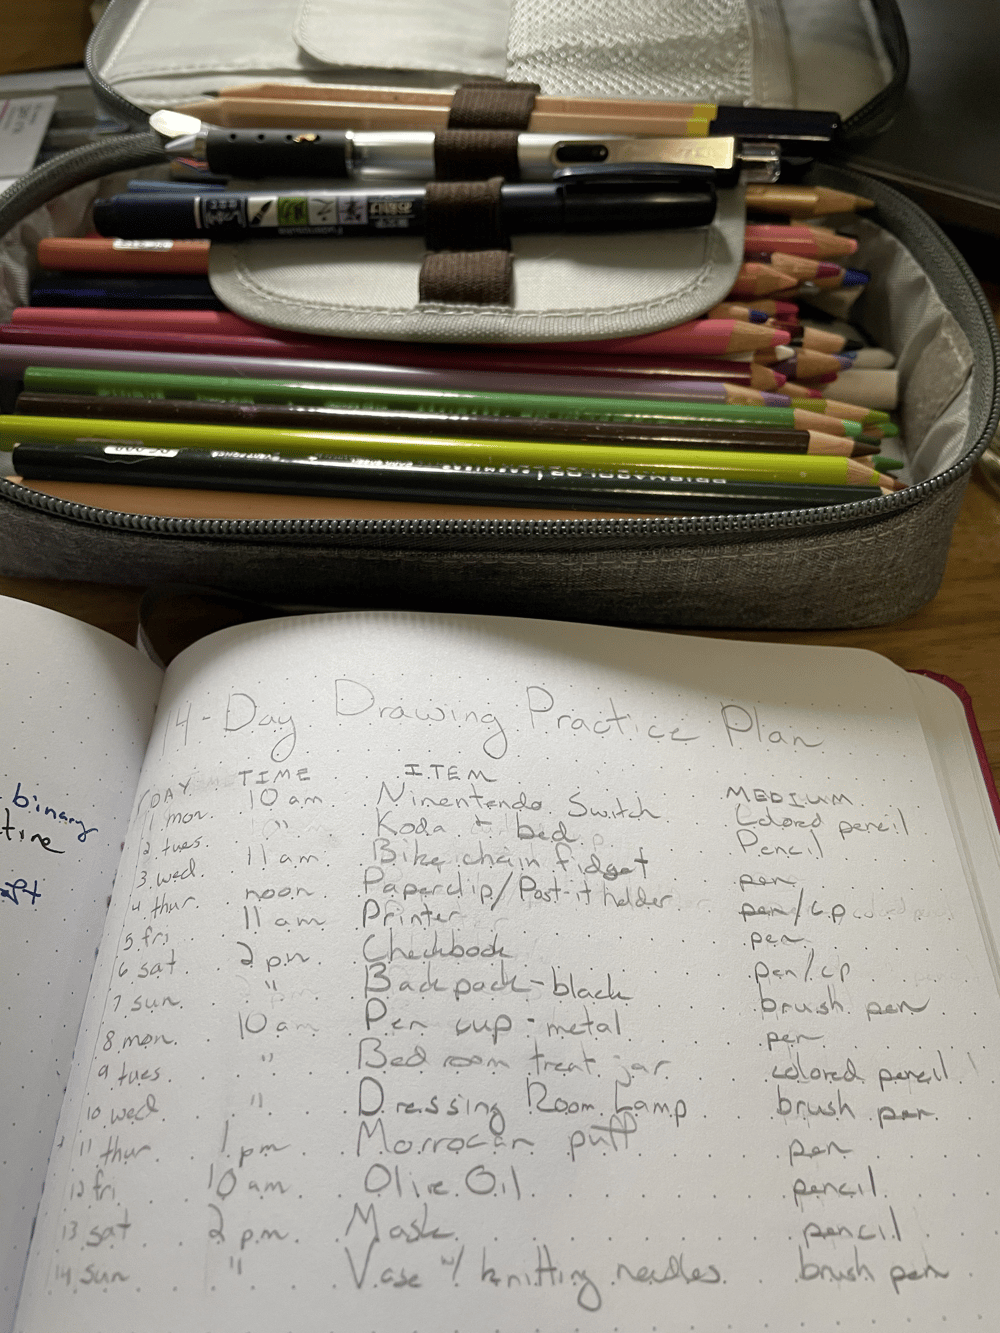 Fudenosuke
PC 908
PRISMACOLOR PREMIER
binary
time
14-Day Drawing Practice Plan
DAY TIME ITEM MEDIUM
1 mon. 10 am Ninentendo Switch Colored pencil
2 tues " Koda + bed Pencil
3 wed. 11 am Bike chain fidget pen
4 thur noon Paperclip/Post-it holder pen/cp
5 fri 11 am Printer pen
6 sat 2 pm Checkbook pen/cp
7 sun " Backpack-black brush pen
8 mon. 10 am Pen cup - metal pen
9 tues " Bedroom treat jar colored pencil
10 wed " Dressing Room Lamp brush pen
11 thur 1 pm Morrocan puff pen
12 fri 10 am Olive Oil pencil
13 sat 2 pm Mask pencil
14 sun " Vase w/ knitting needles brush pen